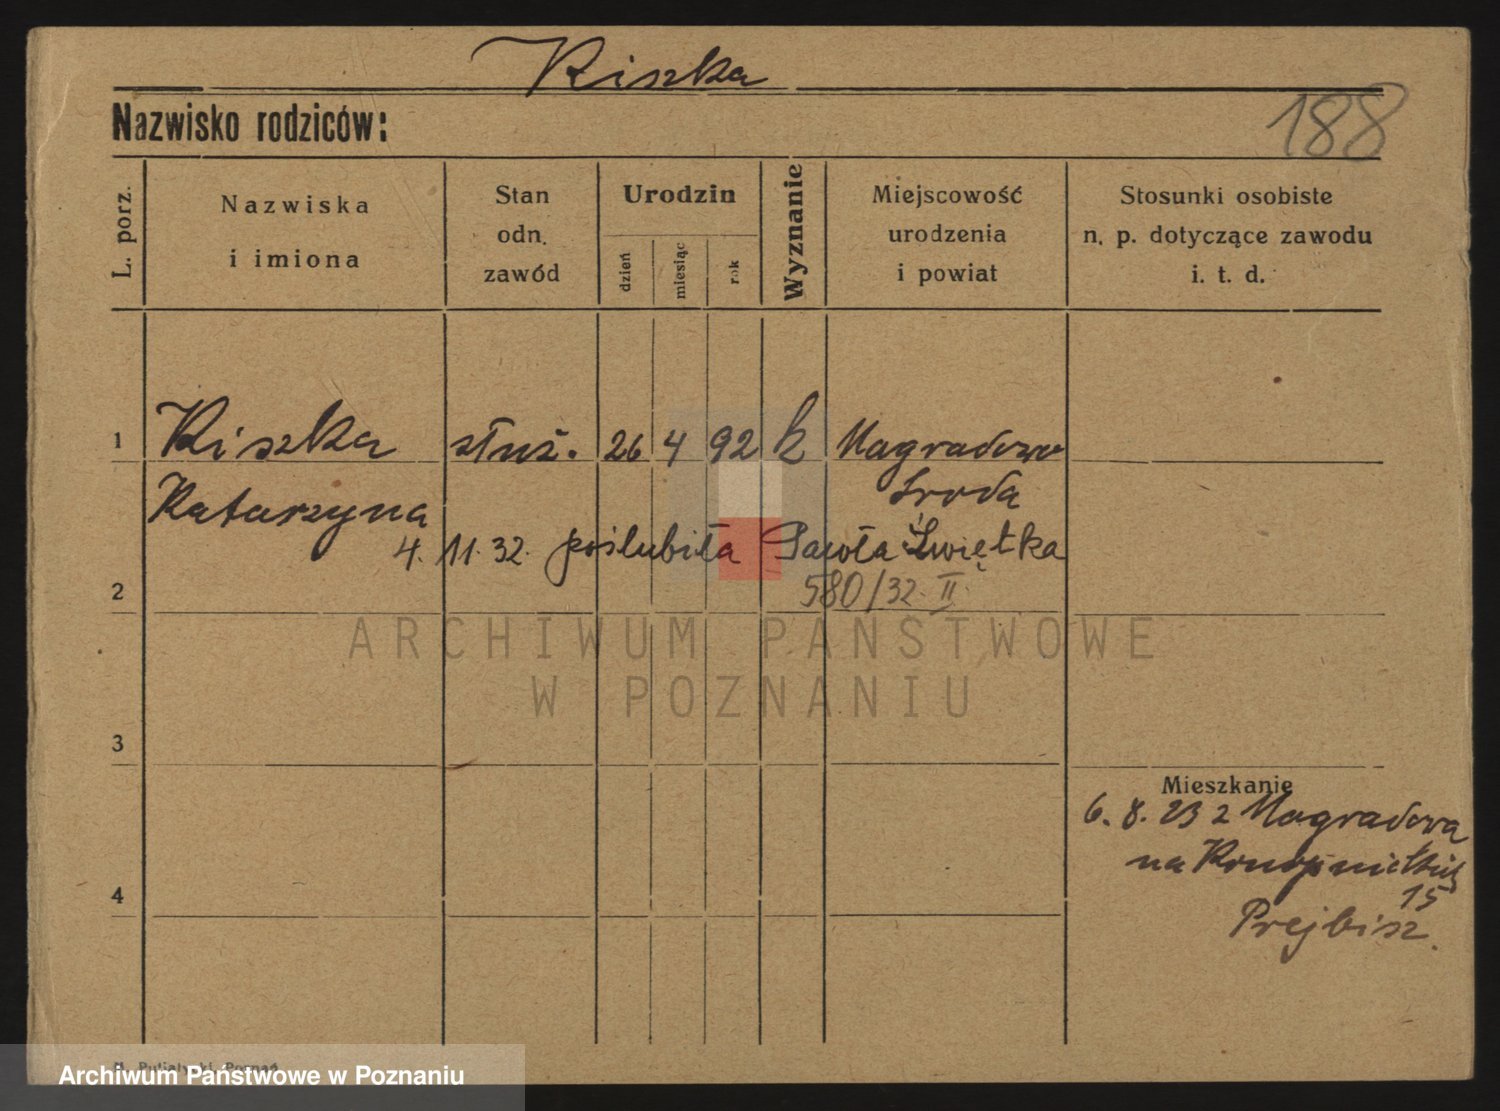 Kiszka
188
Nazwisko rodziców:
L. porz.
Nazwiska
i imiona
Stan
odn.
zawód
Urodzin
dzień
miesiąc
rok
Wyznanie
Miejscowość
urodzenia
i powiat
Stosunki osobiste
n. p. dotyczące zawodu
i. t. d.
1 Kiszka służ. 26 4 92 k Nagradowo
Środa
Katarzyna
4. 11. 32. poślubiła Pawła Świętka
580/32 II
2
ARCHIWUM PAŃSTWOWE
W POZNANIU
3
Mieszkanie
6. 8. 23 z Nagradowa
na
15
4
Prejbisz.
Poznań
Archiwum Państwowe w Poznaniu